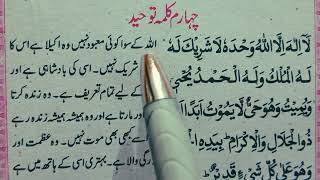 چہارم کلمہ توحید
لَآ اِلٰهَ اِلَّا اللّٰهُ وَحْدَهٗ لَا شَرِيْكَ لَهٗ
لَهُ الْمُلْكُ وَلَهُ الْحَمْدُ يُحْيٖ
وَيُمِيْتُ وَهُوَ حَيٌّ لَّا يَمُوْتُ اَبَدًا اَبَدًا
ذُو الْجَلَالِ وَالْاِكْرَامِ بِيَدِهِ الْخَيْرُ
وَهُوَ عَلٰى كُلِّ شَيْءٍ قَدِيْرٌ
اللہ کے سوا کوئی معبود نہیں وہ اکیلا ہے اس کا
شریک نہیں۔ اسی کی بادشاہی ہے اور
کے لیے تمام تعریف ہے۔ وہ زندہ کرتا
مارتا ہے اور وہ ہمیشہ ہمیشہ زندہ ہے
کبھی بھی موت نہیں۔ وہ عظمت اور
والا ہے۔ بہتری اسی کے ہاتھ میں ہے